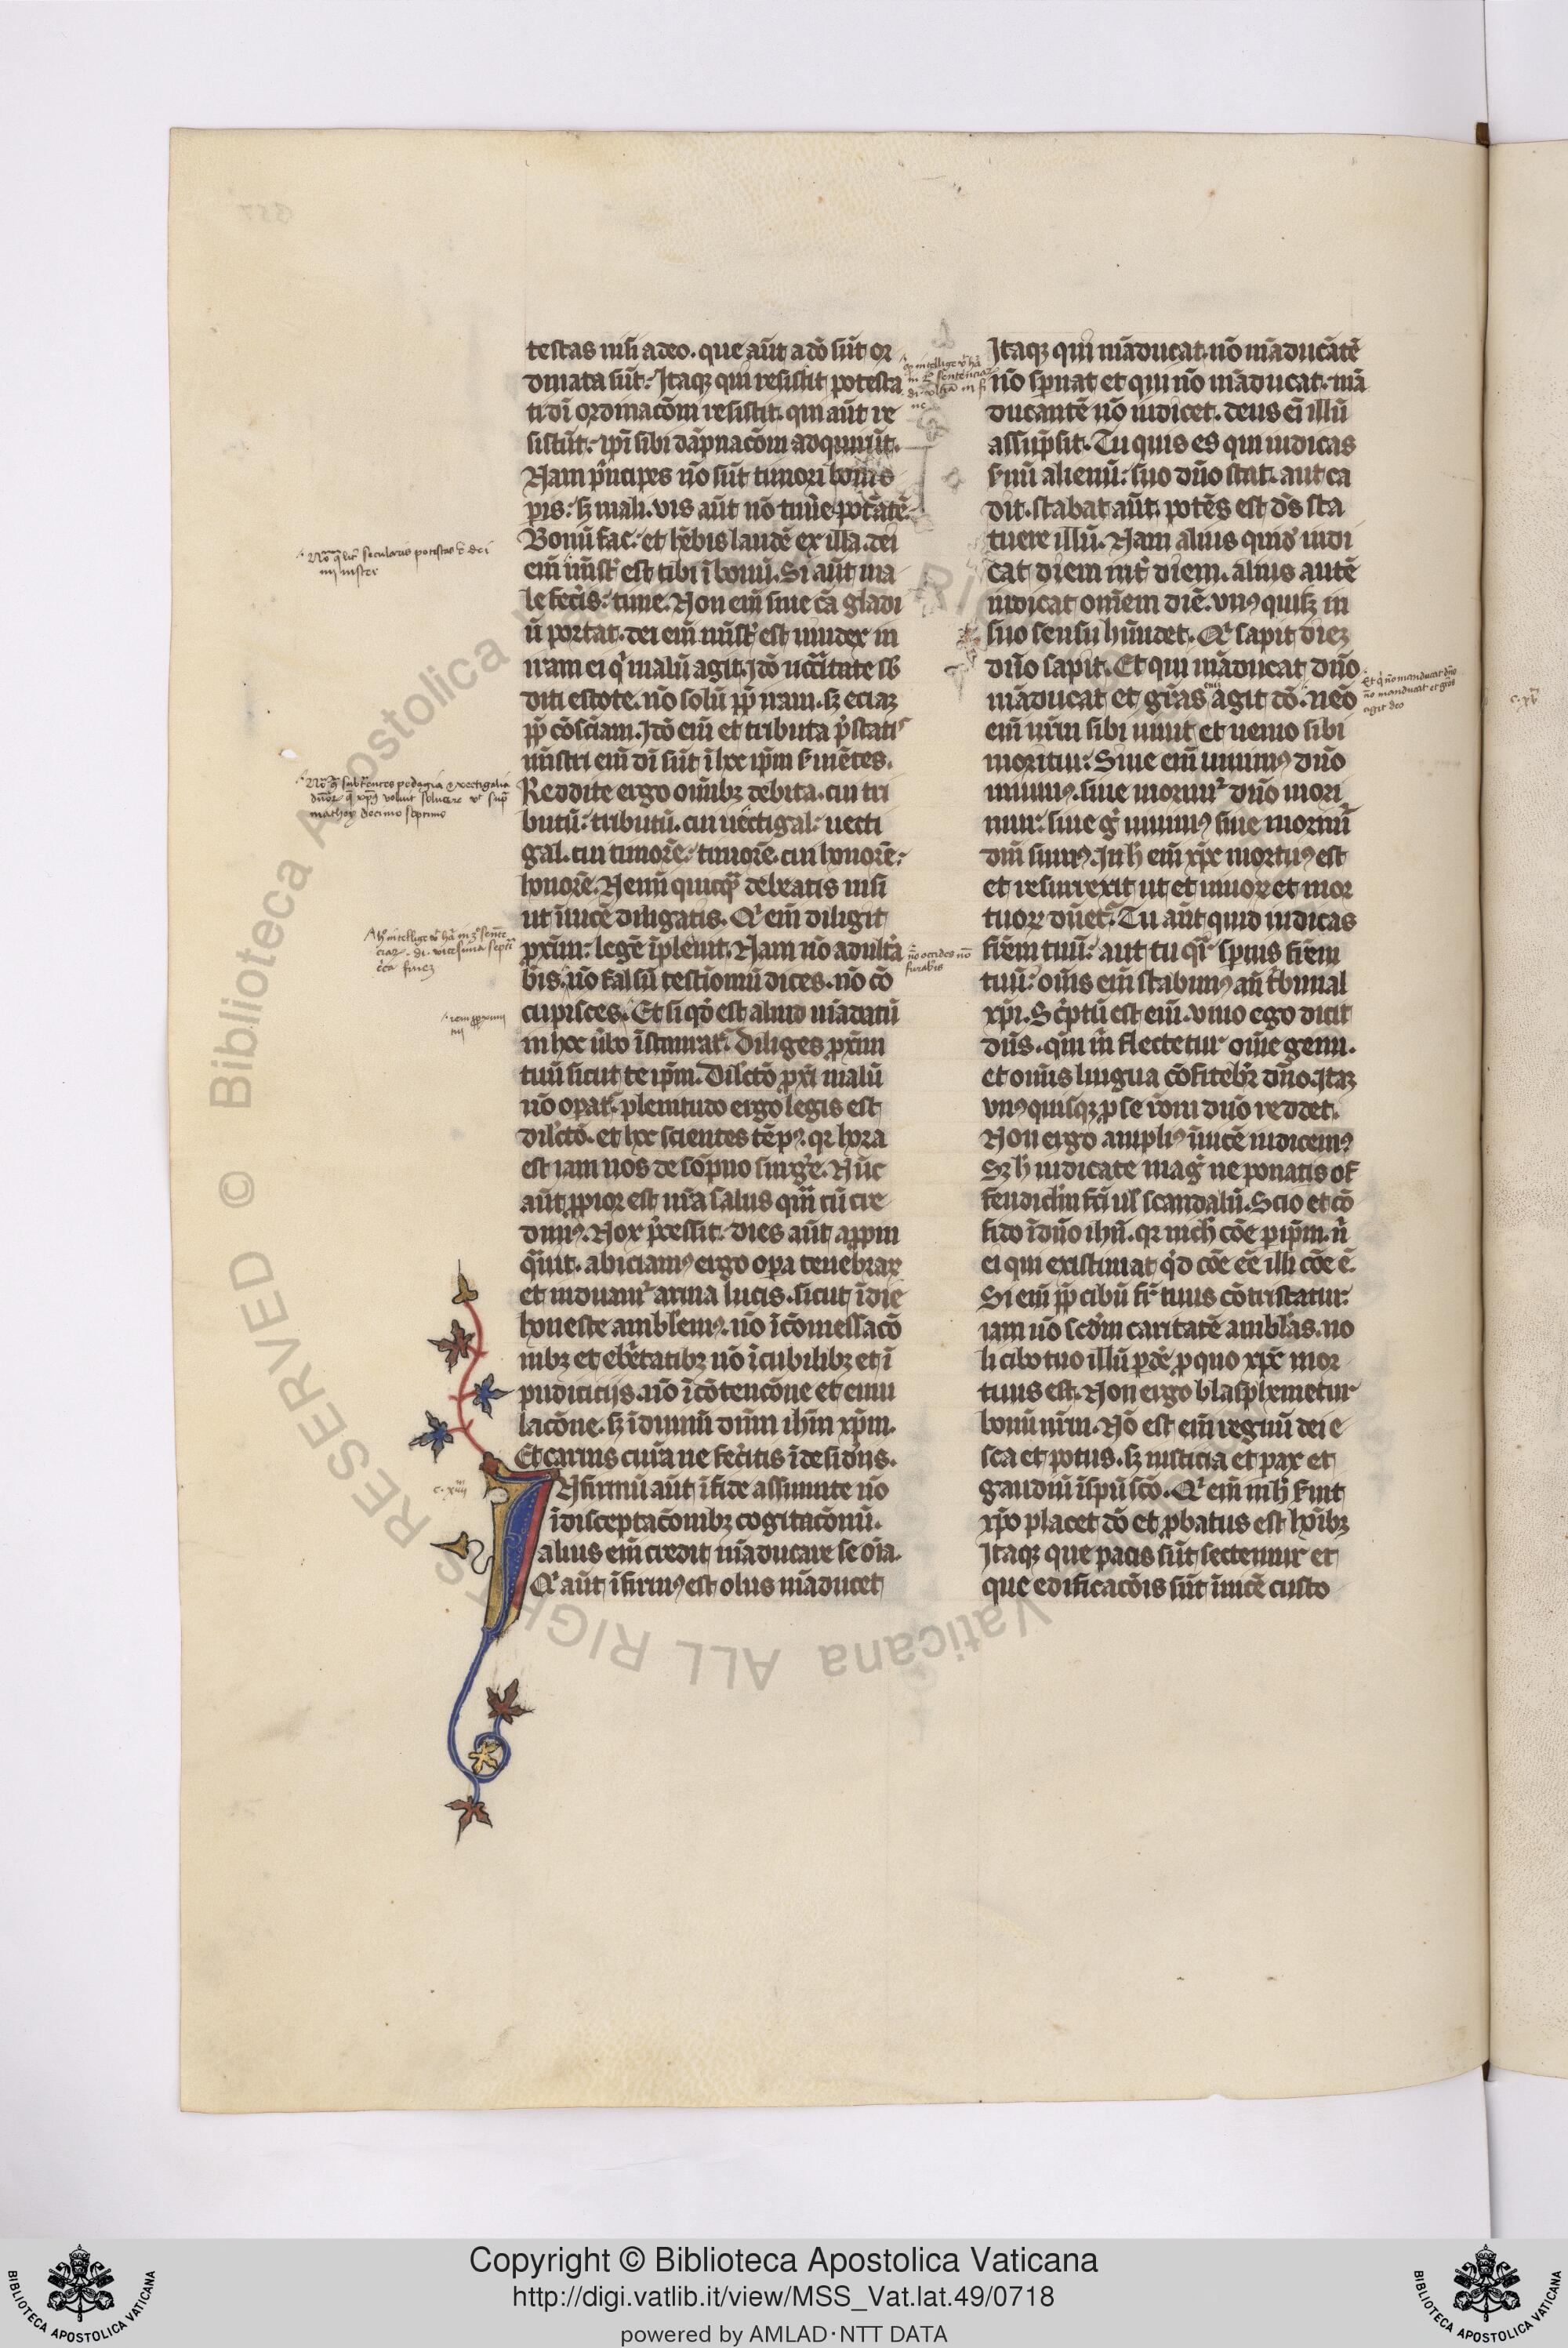 testas nisi a deo. que aūt a dō sūt or
dinata sūt. Itaqꝫ qui resistit potesta
ti dī ordinacōm resistit. qui aūt re
sistūt. ip̄i sibi dāpnacōm adquirūt.
Nam p̄ncipes nō sūt timori boni o
ꝑis. sꝫ mali. vis aūt nō timē potātē.
Bonū fac. et hēbis laudē ex illa. dei
em̄ mīst͛ est tibi ī bonū. Si aūt ma
le fec̄is. time. Non em̄ sine cā gladi
ū portat. dei em̄ mīst͛ est vindex in
iram ei qͥ malū agit. Idō nccītate sb̄
diti estote. nō solū ꝓp̄ iram. sꝫ eciaꝫ
ꝓp̄ cōsciam. Idō em̄ et tributa p̄statis
mīstri em̄ dī sūt ī hoc ip̄m s̄uiētes.
Reddite ergo om̄ibꝫ debita. cui tri
butū. tributū. cui vectigal. uecti
gal. cui timorē. timorē. cui honorē.
honorē. Nemī quicq̄ debeatis nisi
ut īuicē diligatis. Qͥ em̄ diligit
ꝓxim̄. legē īpleuit. Nam nō adult̄a
bis. nō falsū testīoniū dices. nō cō
cupisces. Et si qͦd est aliud mādatū
in hoc ūbo īstaurat͛. Diliges ꝓxim̄
tuū sicut te ip̄m. Dilctō ꝓxī malū
nō opat͛. plenitudo ergo legis est
dilctō. et hoc scientes tēpꝰ. qr hora
est iam nos de sōpno surge͛. Nūc
aūt ꝓpior est nr̄a salus qm̄ cū cre
dimꝰ. Nox p̄cessit. dies aūt appin
q̄uit. abiciamꝰ ergo opa tenebraꝝ
et induamͬ arma lucis. sicut ī die
honeste amblemꝰ. nō ī cōmessacō
nibꝫ et eb̄etatibꝫ nō ī cubilibꝫ et ī
pudiciciis. nō ī cōtencōne et emu
lacōne. sꝫ īduimī dn̄m ihm̄ xp̄m.
Et carnis curā ne fec̄itis ī desid̄iis.
INfirmū aūt ī fide assumite nō
ī disceptacōnibꝫ cogitacōnū.
alius em̄ credit māducare se oīa.
Qͥ aūt īfirmꝰ est olus māducet
Itaqꝫ qui māducat. nō māducātē
nō spnat et qui nō māducat. mā
ducantē nō iudicet. deus em̄ illū
assūpsit. Tu quis es qui iudicas
s̄uū alienū. suo dn̄o stat. aut ca
dit. stabat aūt. potēs est ds̄ sta
tuere illū. Nam alius quid͛ iudi
cat diem int͛ diem. alius autē
iudicat omēm diē. vnꝰquisꝫ in
suo sensu hūndet. Qͥ sapit dieꝫ
dn̄o sapit. Et qui māducat dn̄o
māducat et gr̄as em̄ agit dō. neō
em̄ nr̄m sibi viuit et nemo sibi
moritur. Siue em̄ viuimꝰ dn̄o
viuimꝰ. siue morimͬ dn̄o mori
mur. siue gͦ viuimꝰ siue morimͬ
dn̄i sumꝰ. In h̄ em̄ xp̄c mortuꝰ est
et resurrexit ut et viuoꝝ et mor
tuoꝝ dn̄et͛. Tu aūt quid iudicas
frēm tuū. aut tu qͬ spnis frēm
tuū. om̄s em̄ stabimꝰ an̄ tͥbunal
xp̄i. Sc̄ptū est em̄. viuo ego dicit
dn̄s. qm̄ m̄ flectetur ome genu.
et om̄is lingua cōfitebr̄ dn̄o. Itaꝫ
vnꝰquisqꝫ ꝓ se rōm dn̄o reddet.
Non ergo amplꝰ īuicē iudicemꝰ
Sꝫ h̄ iudicate mag͛ ne ponatis of
fendicīm frī ul̄ scandalū. Scio et cō
fido ī dn̄o ihū. qr nich̄ cōe p ip̄m. n̄
ei qui existimat qͥd cōe eē illi cōe ē.
Si em̄ ꝓp̄ cibū fr̄ tuus cōtristatur.
iam nō scdm̄ caritatē amblas. no
li cibo tuo illū ꝑde͛ ꝓ quo xp̄c mor
tuus est. Non ergo blasphemetur
bonū nr̄m. Nō est em̄ regnū dei e
sca et potus. sꝫ iusticia et pax et
gaudiū ī spū scō. Qͥ em̄ in h̄ s̄uit
xp̄o placet dō et ꝓbatus est hoībꝫ
Itaqꝫ que pacis sūt sectemur et
que edificacōis sūt īuicē custo
c. xiiii
c. xv
Copyright © Biblioteca Apostolica Vaticana
http://digi.vatlib.it/view/MSS_Vat.lat.49/0718
powered by AMLAD·NTT DATA
BIBLIOTECA APOSTOLICA VATICANA
BIBLIOTECA APOSTOLICA VATICANA
© Biblioteca Apostolica Vaticana ALL RIGHTS RESERVED